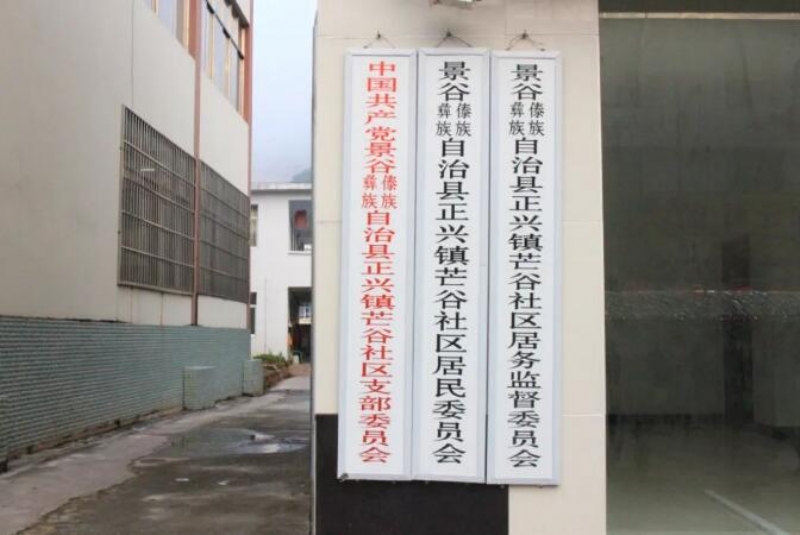 中国共产党景谷傣族彝族自治县正兴镇芒谷社区支部委员会
景谷傣族彝族自治县正兴镇芒谷社区居民委员会
景谷傣族彝族自治县正兴镇芒谷社区居务监督委员会